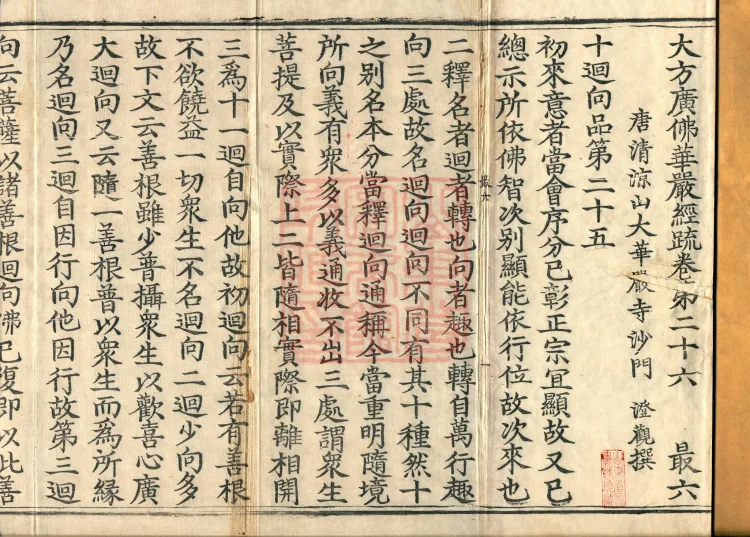 大方廣佛華嚴經䟽卷苐二十六 最六
唐清涼山大華嚴寺沙門 澄觀撰
十迴向品第二十五
初來意者當會序分已彰正宗宜顯故又已
總示所依佛智次別顯能依行位故次來也
二釋名者迴者轉也向者趣也轉自萬行趣
向三處故名迴向迴向不同有其十種然十
之別名本分當釋迴向通稱今當重明隨境
所向義有衆多以義通收不出三處謂衆生
菩提及以實際上二皆隨相實際即離相開
三為十一迴自向他故初迴向云若有善根
不欲饒益一切衆生不名迴向二迴少向多
故下文云善根雖少普攝衆生以歡喜心廣
大迴向又云隨一善根普以衆生而為所緣
乃名迴向三迴自因行向他因行故第三迴
向云菩薩以諸善根迴向佛已復即以此善